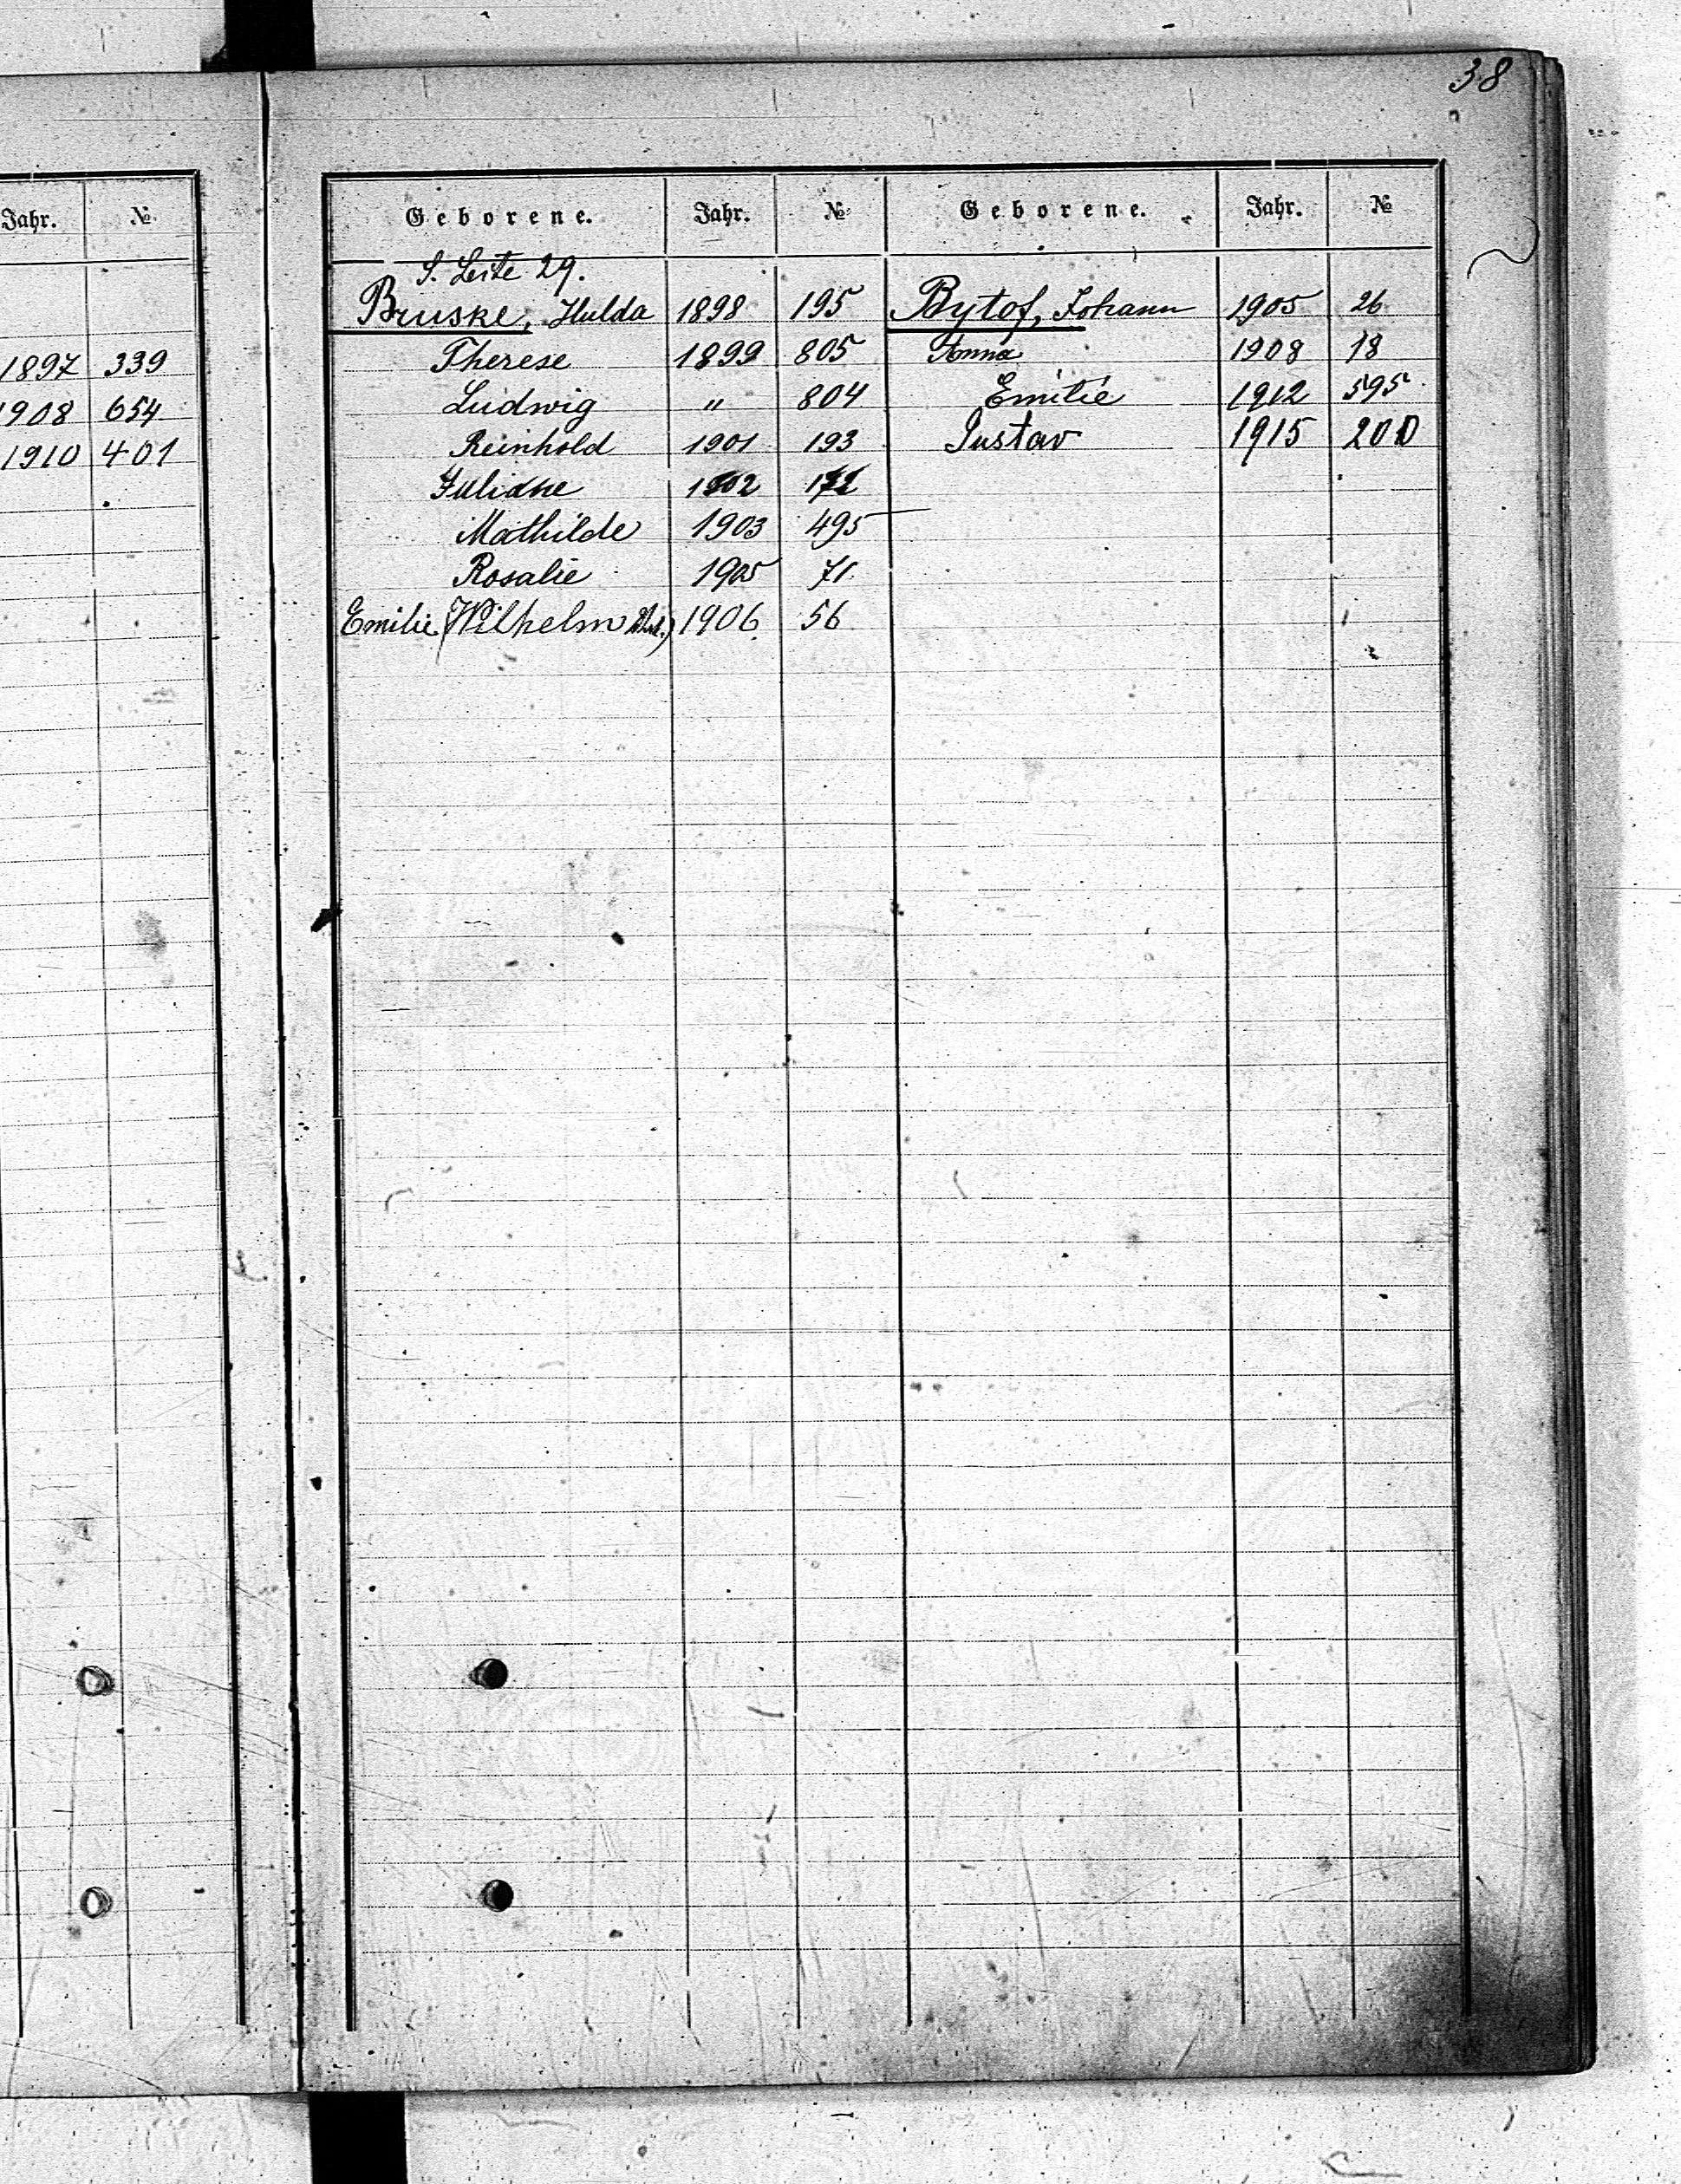 38
Jahr. №
1897 339
1908 654
1910 401
Geborene. Jahr. № Geborene. Jahr. №
S. Seite 29.
Bruske, Hulda 1898 195 Bytof, Johann 1905 26
Therese 1899 805 Anna 1908 18
Ludwig " 804 Emilie 1912 595
Reinhold 1901 193 Gustav 1915 200
Julidne 1902
Mathilde 1903 495
Rosalie 1905 71
Emilie (Wilhelm 1906 56